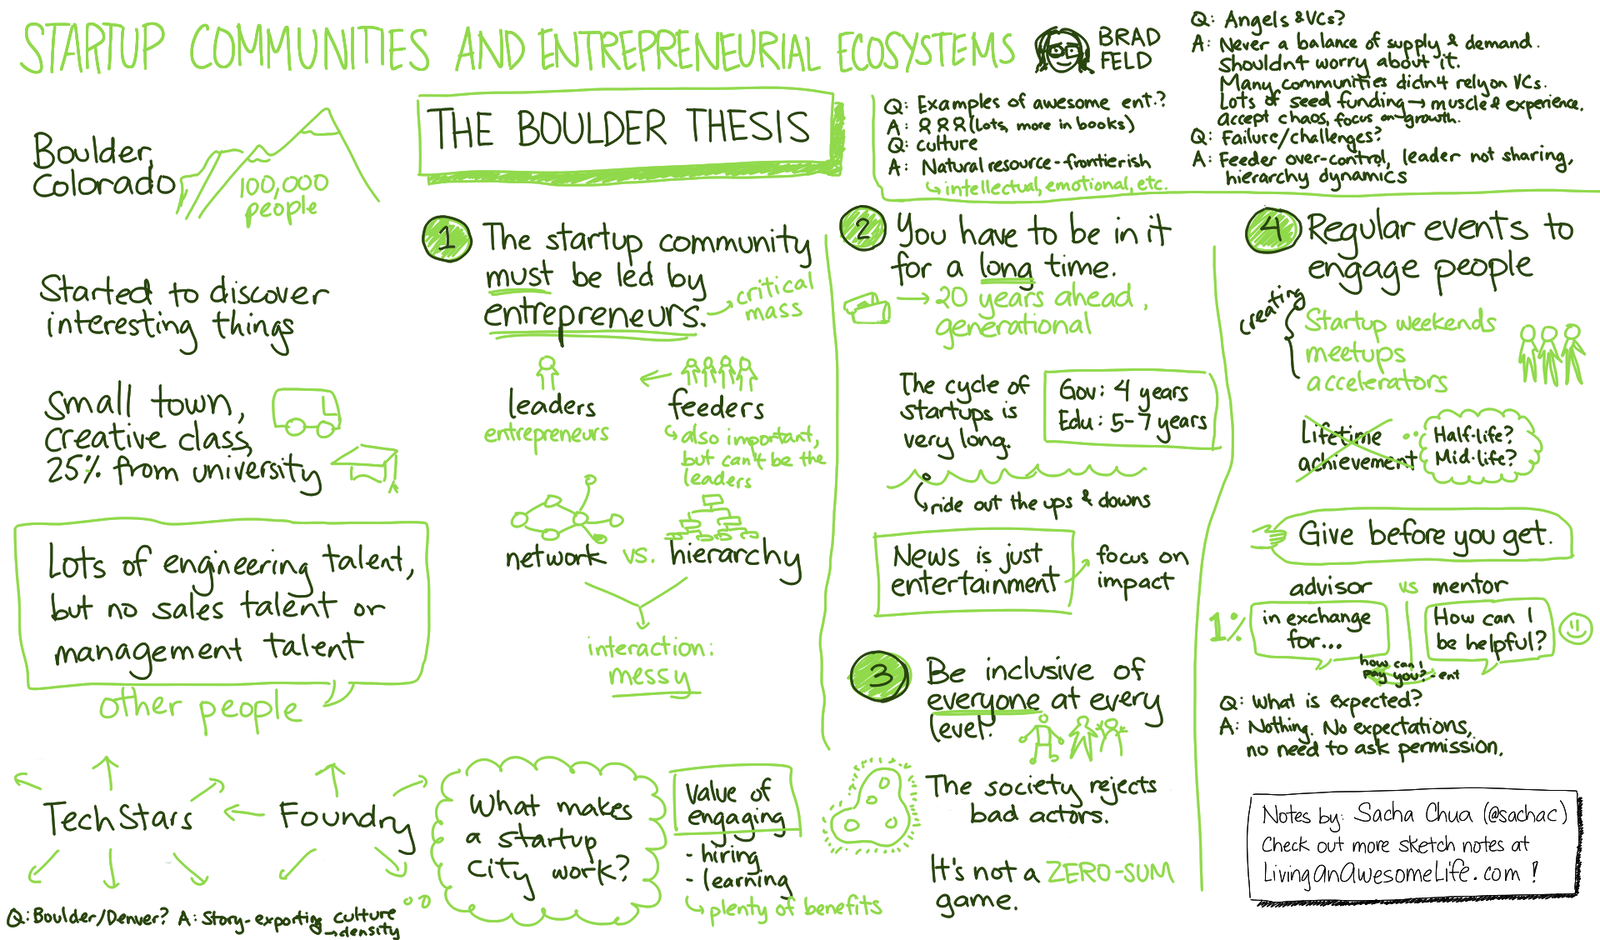 STARTUP COMMUNITIES AND ENTREPRENEURIAL ECOSYSTEMS
BRAD
FELD
Boulder,
Colorado
100,000
people
Started to discover
interesting things
Small town,
creative class,
25% from university
Lots of engineering talent,
but no sales talent or
management talent
other people
TechStars
Foundry
Q: Boulder/Denver? A: Story-exporting culture
→density
THE BOULDER THESIS
1 The startup community
must be led by
entrepreneurs.
critical
mass
leaders
entrepreneurs
feeders
also important,
but can't be the
leaders
network vs. hierarchy
interaction:
messy
What makes
a startup
city work?
Value of
engaging
- hiring
- learning
plenty of benefits
Q: Examples of awesome ent.?
A: (Lots, more in books)
Q: culture
A: Natural resource-frontierish
intellectual, emotional, etc.
Q: Angels & VCs?
A: Never a balance of supply & demand.
Shouldn't worry about it.
Many communities didn't rely on VCs.
Lots of seed funding → muscle & experience.
accept chaos, focus on growth.
Q: Failure/challenges?
A: Feeder over-control, leader not sharing,
hierarchy dynamics
2 You have to be in it
for a long time.
→ 20 years ahead,
generational
The cycle of
startups is
very long.
Gov: 4 years
Edu: 5-7 years
ride out the ups & downs
News is just
entertainment
focus on
impact
3 Be inclusive of
everyone at every
level.
The society rejects
bad actors.
It's not a ZERO-SUM
game.
4 Regular events to
engage people
creating
Startup weekends
meetups
accelerators
Lifetime
achievement
Half-life?
Mid-life?
Give before you get.
advisor vs mentor
1%
in exchange
for...
How can I
be helpful?
how can I
pay you? - ent
Q: What is expected?
A: Nothing. No expectations,
no need to ask permission.
Notes by: Sacha Chua (@sachac)
Check out more sketch notes at
LivingAnAwesomeLife.com !